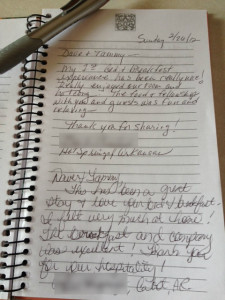 Sunday 2/26/12
Dave & Tammy —
My 1st bed & breakfast
experience has been really nice!
Really enjoyed our room and
hot tub. The food & fellowship
with you and guests was fun and
relaxing —
Thank you for sharing!
Hot Springs, Arkansas
Tammy
This has been a great
stay & love your bed & breakfast.
I felt very much at home!
The breakfast and company
was excellent! Thank you
for your hospitality!
Cabot, AR.